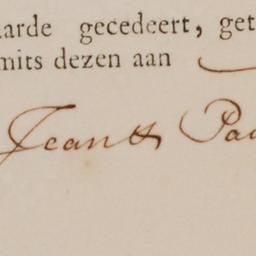 aarde gecedeert, get
mits dezen aan
Jean & Pa